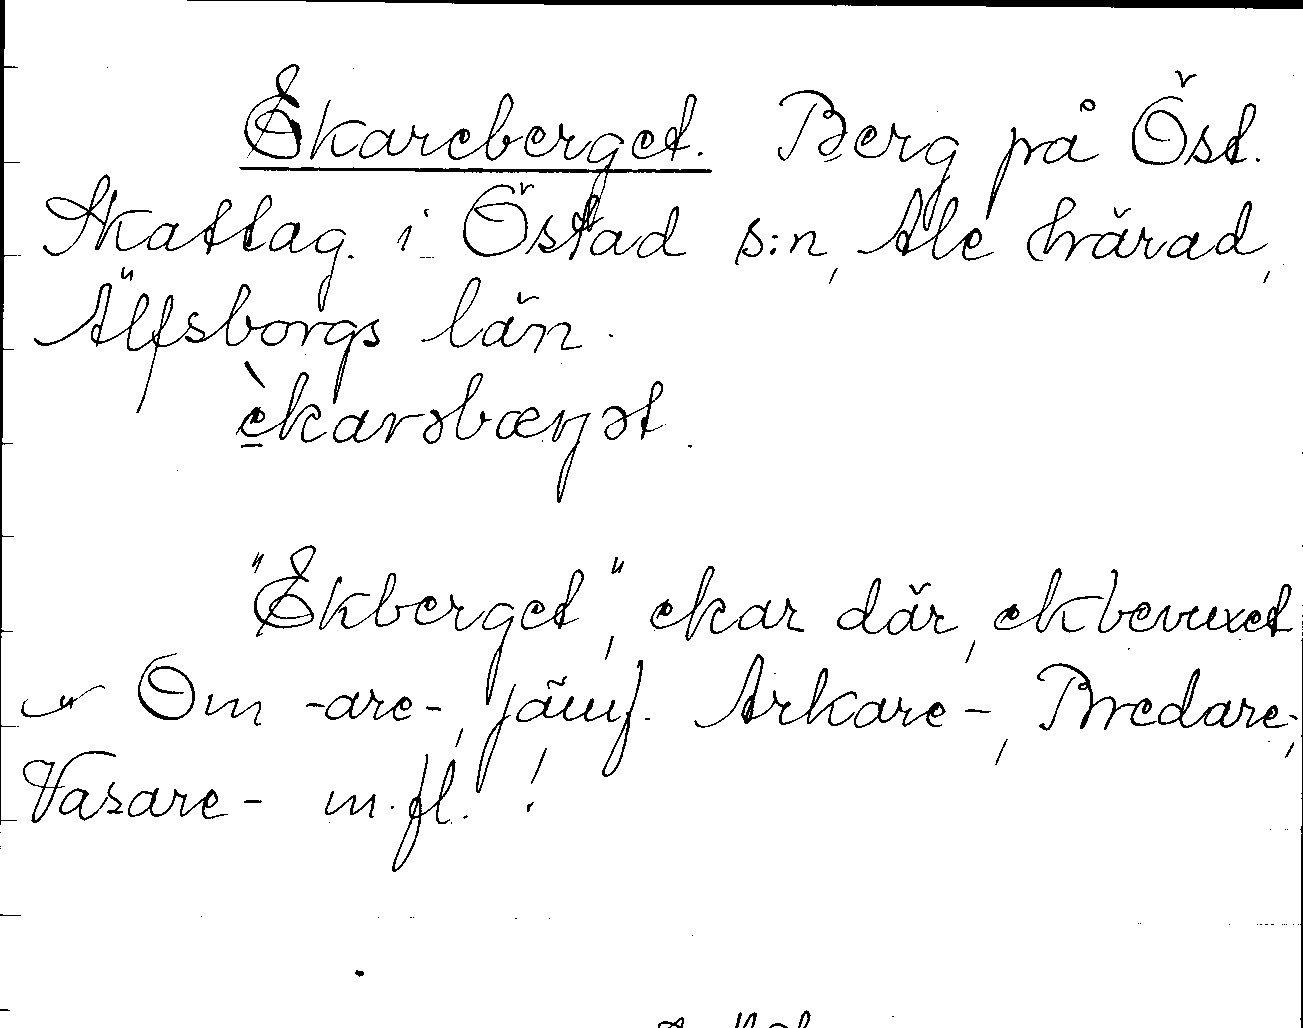 Ekareberget. Berg på Öst.
Skattag. i Östad s:n, Ale härad,
Älfsborgs län.
èkarəbærjət.
"Ekberget", ekar där, ekbevuxet
Om -are-, jämf. Arkare-, Bredare-,
Vasare- m.fl.!